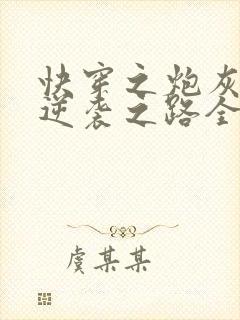 快穿之炮灰
逆袭之路全
虞某某